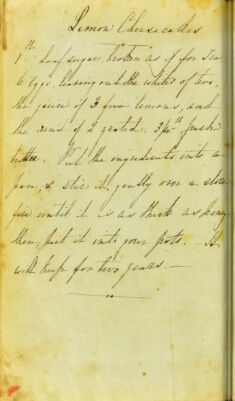 Lemon Cheesecakes
1 lb Loaf sugar broken as if for Tea
6 Eggs leaving out the whites of two,
the juice of 3 fine lemons, and
the rind of 2 grated. 3/4 lb fresh
butter. Put the ingredients into a
pan & stir it gently over a slow
fire until it is as thick as honey
then put it into your pots. — It
will keep for two years. —